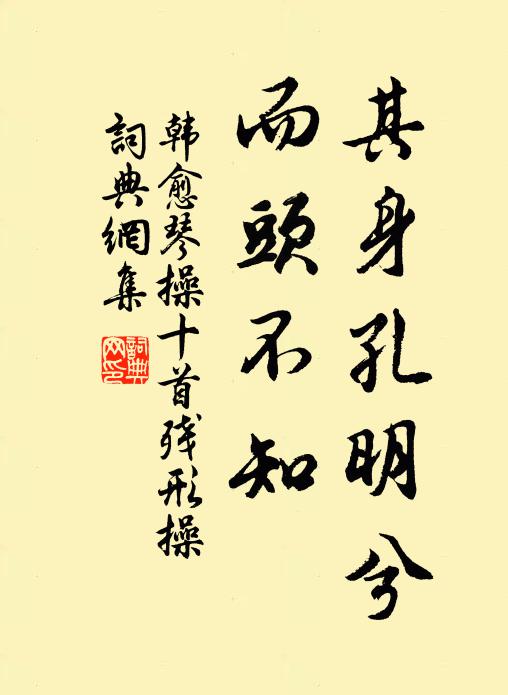 其身孔明兮
而頭不知
韩愈琴操十首残形操
詞典網集
詞典
网印